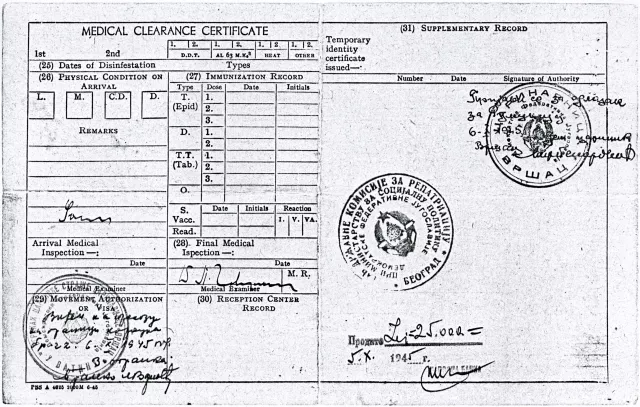 MEDICAL CLEARANCE CERTIFICATE
1st 2nd
1. 2. 1. 2. 1. 2. 1. 2.
D.D.T. AL 63 M.K³ HEAT OTHER
(25) Dates of Disinfestation Types
(26) PHYSICAL CONDITION ON ARRIVAL
L. M. C.D. D.
REMARKS
Arrival Medical
Inspection —:
Date
Medical Examiner
(27) IMMUNIZATION RECORD
Type Dose Date Initials
T. (Epid) 1.
2.
3.
D. 1.
2.
T.T. (Tab.) 1.
2.
3.
O.
S. Vacc. Date Initials Reaction
I. V. VA.
Read.
(28). Final Medical
Inspection —:
Date
M. R.
Medical Examiner
(29) MOVEMENT AUTHORIZATION
OR VISA
(30) RECEPTION CENTER
RECORD
(31) SUPPLEMENTARY RECORD
Temporary
identity
certificate
issued—:
Number Date Signature of Authority
за
6-X-1945
Вршац
ВРШАЦ
ДРЖАВНЕ КОМИСИЈЕ ЗА РЕПАТРИЈАЦИЈУ
ПРИ МИНИСТАРСТВУ ЗА СОЦИЈАЛНУ ПОЛИТИКУ
ДЕМОКРАТСКЕ ФЕДЕРАТИВНЕ ЈУГОСЛАВИЈЕ
БЕОГРАД
Lej-25.000=
5.X. 1945 г.